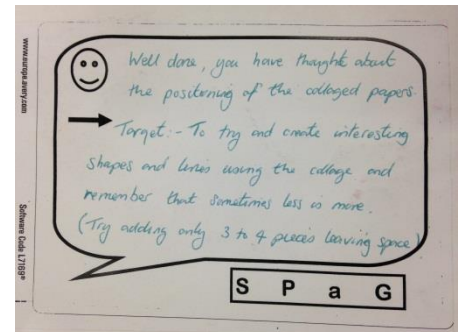 www.europe.avery.com
Well done, you have thought about
the positioning of the collaged papers.
Target:- To try and create interesting
shapes and lines using the collage and
remember that sometimes less is more.
(Try adding only 3 to 4 pieces leaving space)
Software Code L7169
S P a G